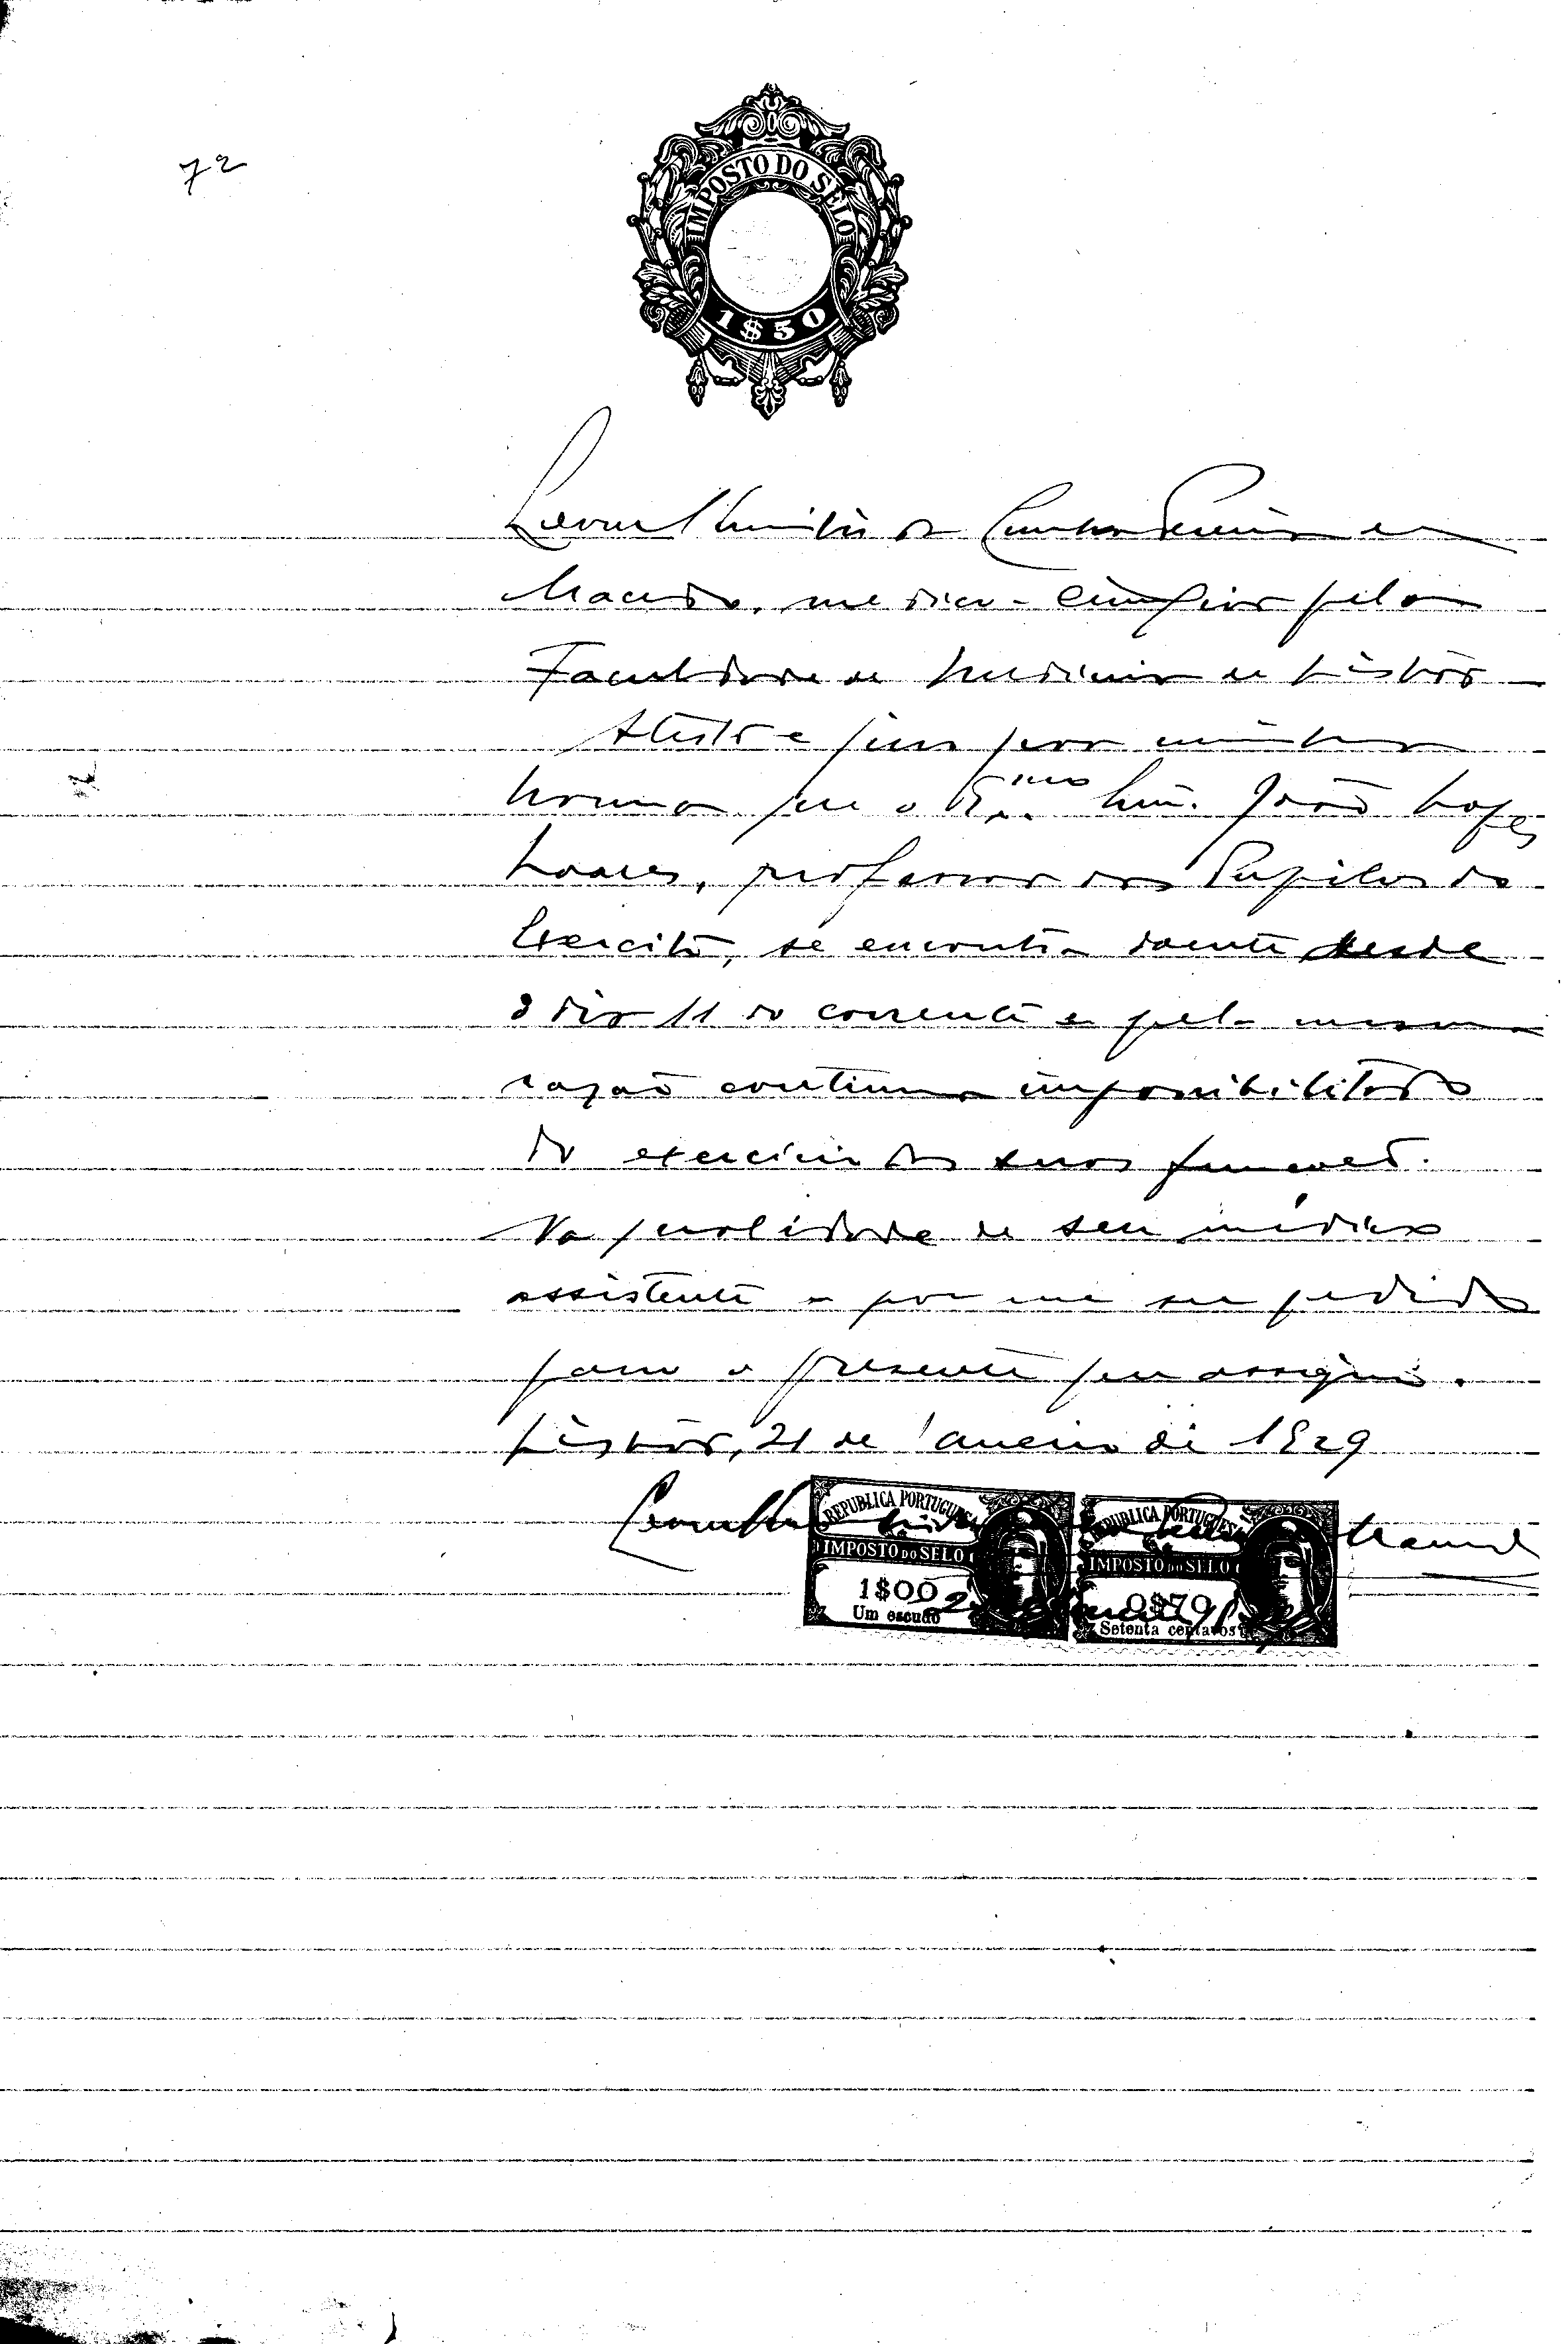 72
IMPOSTO DO SELO
1$50
da Cunha Pereira de
Macedo, medico-cirurgião pela
Faculdade de Medicina de Lisbôa
Atesto e juro por minha
honra que o Exmo Snr. João Lopes
Soares, professor dos Pupilos do
Exercito, se encontra doente desde
o dia 11 do corrente e pela mesma
razão continua impossibilitado
do exercicio das suas funções.
Na qualidade de seu médico
assistente e por me ser pedido
passo o presente que assigno.
Lisbôa, 21 de Janeiro de 1929
REPUBLICA PORTUGUESA REPUBLICA PORTUGUESA
Macedo
IMPOSTO DO SELO IMPOSTO DO SELO
1$00 0$70
Um escudo Setenta centavos